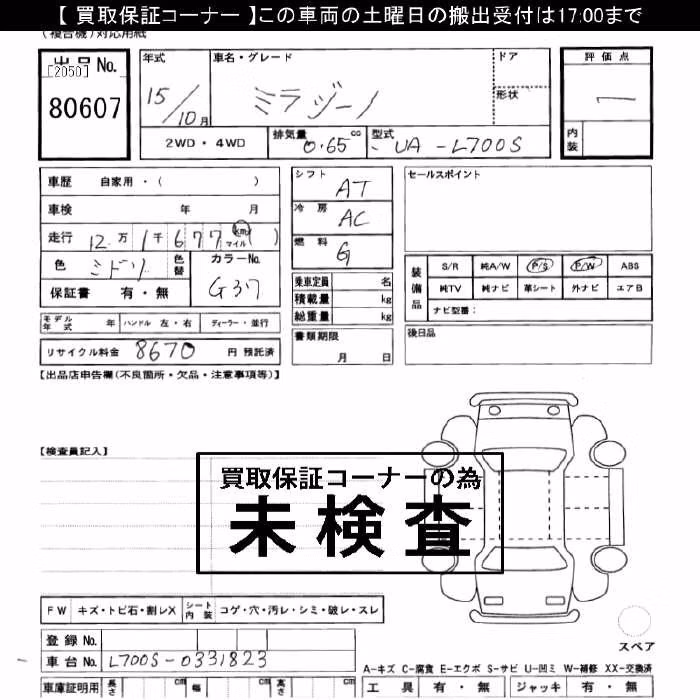 【 買取保証コーナー 】この車両の土曜日の搬出受付は17:00まで
(複合機)対応用紙
出品 No.
[2050]
80607
年式
15/10月
車名・グレード
ミラジーノ
ドア
形状
評価点
一
内装
2WD・4WD
排気量
0.65 cc
型式
UA-L700S
車歴 自家用・( )
車検 年 月
走行 12万1千677 km マイル ( )
色 ミドリ
色替
カラーNo.
G37
保証書 有・無
シフト AT
冷房 AC
燃料 G
乗車定員 名
積載量 kg
総重量 kg
書類期限
月 日
セールスポイント
装備品
S/R 純A/W P/S P/W ABS
純TV 純ナビ 革シート 外ナビ エアB
ナビ型番:
後日品
モデル年式 年 ハンドル 左・右 ディーラー・並行
リサイクル料金 8670 円 預託済
【出品店申告欄(不良箇所・欠品・注意事項等)】
【検査員記入】
買取保証コーナーの為
未検査
FW キズ・トビ石・割レX シート内装 コゲ・穴・汚レ・シミ・破レ・スレ
登録 No.
車台 No. L700S-0331823
スペア
A-キズ C-腐食 E-エクボ S-サビ U-凹ミ W-補修 XX-交換済
車庫証明用 長さ cm 幅 cm 高さ cm
工具 有・無 ジャッキ 有・無